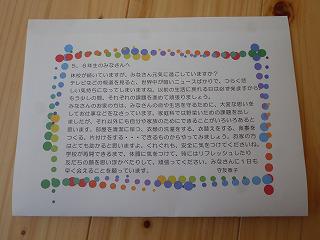 5、6年生のみなさんへ
休校が続いていますが、みなさん元気に過ごしていますか?
テレビなどの報道を見ると、世界中が暗いニュースばかりで、つらく苦
しい気持ちになってしまいますね。以前の生活に戻れる日は必ず来ますから
もう少しの間、それぞれの課題を進めて頑張りましょう。
みなさんのお家の方は、みなさんの命や生活を守るために、大変な思いを
してお仕事などをなさっています。家庭科では野菜いための課題を出し
ましたが、それ以外にも自分や家族のためにできることがいろいろあると
思います。部屋を清潔に保つ、衣類の洗濯をする、お鍋えをする、食事を
つくる、片付けをする・・・できるものからやってみましょう。お家の方
はとても助かると思いますよ。くれぐれも、安全に気をつけてくださいね。
学校が再開できるまで、体調に気をつけて、時にはリフレッシュしたり
友だちの顔を思い浮かべたりして、頑張ってください。みなさんに1日も
早く会えることを願っています。